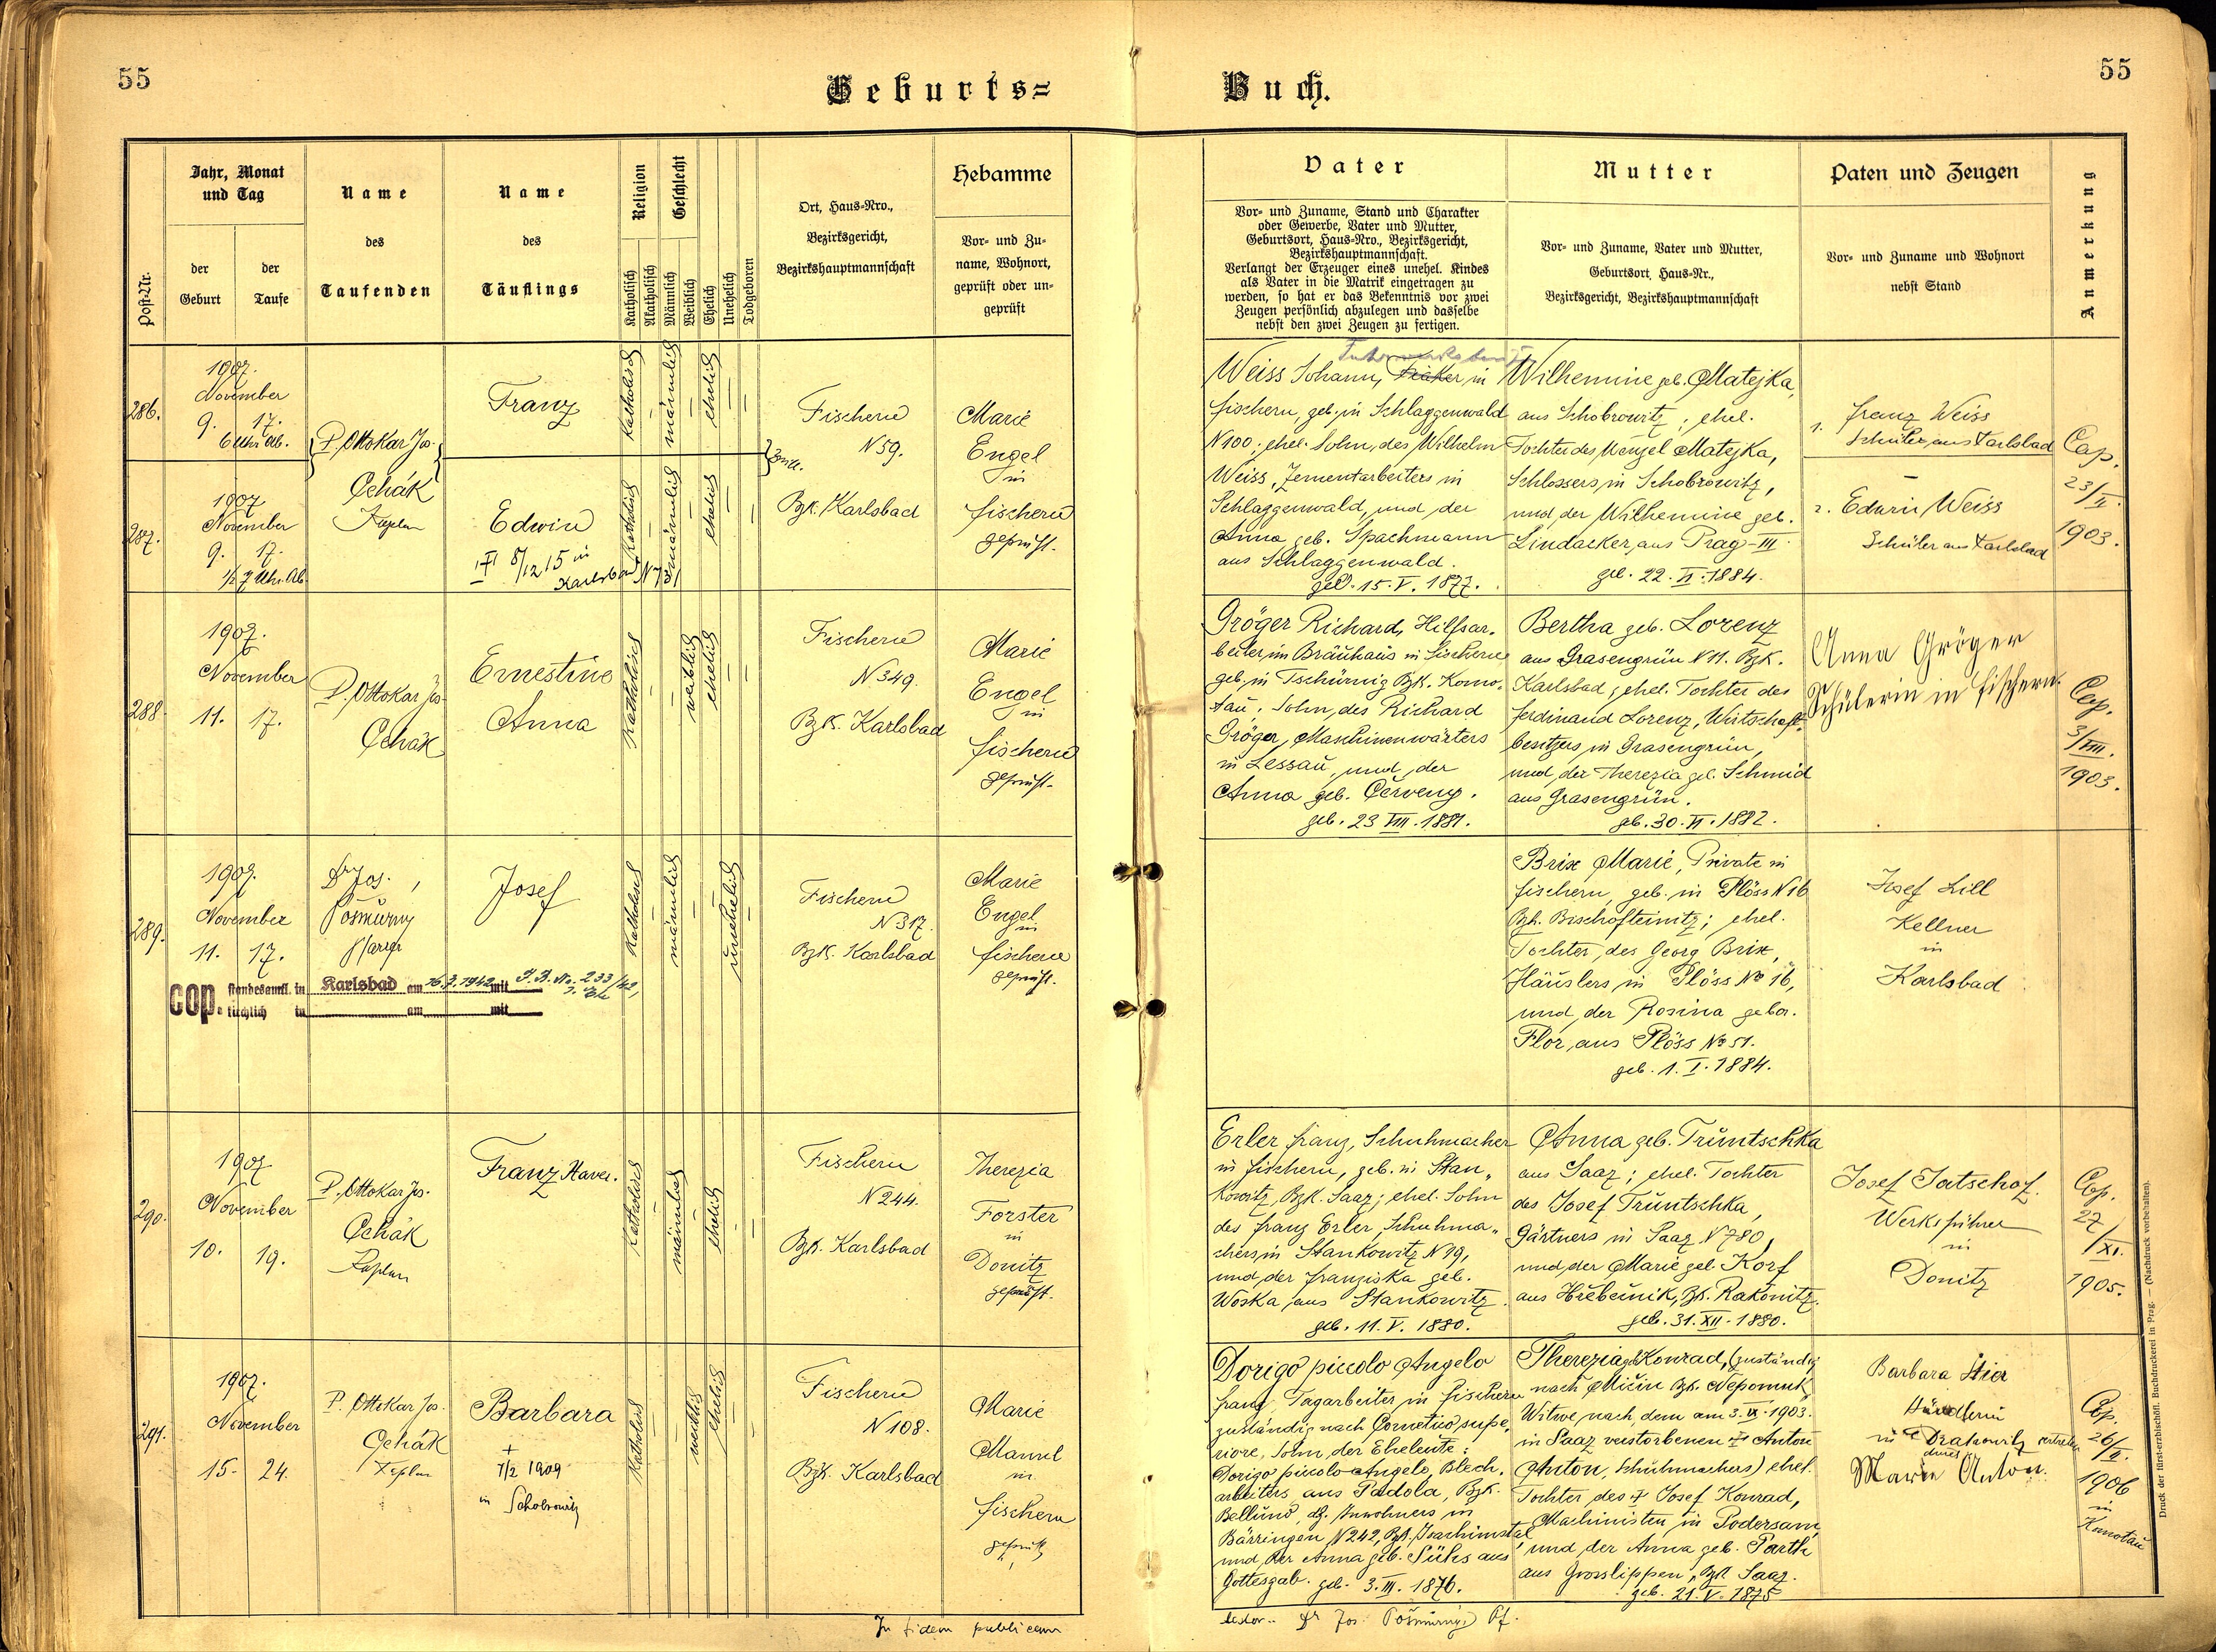 55
Geburts=
Buch.
55
Post-Nr.
Jahr, Monat
und Tag
der
Geburt
der
Taufe
Name
des
Taufenden
Name
des
Täuflings
Religion
Katholisch
Akatholisch
Geschlecht
Männlich
Weiblich
Ehelich
Unehelich
Todgeboren
Ort, Haus-Nro.,
Bezirksgericht,
Bezirkshauptmannschaft
Hebamme
Vor- und Zu-
name, Wohnort,
geprüft oder un-
geprüft
Vater
Vor- und Zuname, Stand und Charakter
oder Gewerbe, Vater und Mutter,
Geburtsort, Haus-Nro., Bezirksgericht,
Bezirkshauptmannschaft.
Verlangt der Erzeuger eines unehel. Kindes
als Vater in die Matrik eingetragen zu
werden, so hat er das Bekenntnis vor zwei
Zeugen persönlich abzulegen und dasselbe
nebst den zwei Zeugen zu fertigen.
Mutter
Vor- und Zuname, Vater und Mutter,
Geburtsort, Haus-Nr.,
Bezirksgericht, Bezirkshauptmannschaft
Paten und Zeugen
Vor- und Zuname und Wohnort
nebst Stand
Anmerkung
286.
1907.
November
9. 17.
6 Uhr Ab.
P. Ottokar Jos.
Čehák
Kaplan
Franz
Katholisch
männlich
ehelich
287.
1907
November
9. 17.
1/2 7 Uhr. Ab.
Edwin
8/12 15 in
Karlsbad
Katholisch
männlich
ehelich
Zwill.
Fischern
N 59.
Bzk. Karlsbad
Marie
Engel
in
Fischern
geprüft.
Weiss Johann, Fiaker in
Fischern, geb. in Schlaggenwald
N 100; ehel. Sohn des Wilhelm
Weiss, Zementarbeiters in
Schlaggenwald, und der
Anna geb. Spachmann
aus Schlaggenwald.
geb. 15. V. 1877.
Wilhemine geb. Matejka,
aus Schobrowitz; ehel.
Tochter des Wenzel Matejka,
Schlossers in Schobrowitz,
und der Wilhemine geb.
Lindacker, aus Prag-III.
geb. 22. VI. 1884.
1. Franz Weiss
Schüler aus Karlsbad
2. Edwin Weiss
Schüler aus Karlsbad
Cop.
23/II.
1903.
288.
1907.
November
11. 17.
P. Ottokar Jos.
Čehák
Ernestine
Anna
Katholisch
weiblich
ehelich
Fischern
N 349.
Bzk. Karlsbad
Marie
Engel
in
Fischern
geprüft.
Gröger Richard, Hilfsar-
beiter im Bräuhaus in Fischern
geb. in Tschürnig Bzk. Komo-
tau. Sohn des Richard
Gröger, Maschinenwärters
in Lessau, und der
Anna geb. Červeny.
geb. 23 VIII. 1881.
Bertha geb. Lorenz
aus Grasengrün N 11. Bzk.
Karlsbad; ehel. Tochter des
Ferdinand Lorenz, Wirtschafts-
besitzers in Grasengrün,
und der Therezia geb. Schmid
aus Grasengrün.
geb. 30. VI. 1882.
Anna Gröger
Schülerin in Fischern.
Cop.
3/VIII.
1903.
289.
1907.
November
11. 17.
Dr Jos.
Pošmůrný
Pfarrer
Josef
Katholisch
männlich
unehelich
Fischern
N 317.
Bzk. Karlsbad
Marie
Engel
in
Fischern
geprüft.
cop. standesamtl. in Karlsbad am 16.7.1942 mit F. B. No. 233/42,
kirchlich in am mit
Brix Marie, Private in
Fischern, geb. in Plöss N 16
Bzk. Bischofteinitz; ehel.
Tochter des Georg Brix,
Häuslers in Plöss No 16,
und der Rosina gebor.
Flor, aus Plöss No 51.
geb. 1. I. 1884.
Josef Lill
Kellner
in
Karlsbad
290.
1907
November
10. 19.
P. Ottokar Jos.
Čehák
Kaplan
Franz Xaver.
Katholisch
männlich
ehelich
Fischern
N 244.
Bzk. Karlsbad
Therezia
Forster
in
Donitz
geprüft.
Erler Franz, Schuhmacher
in Fischern, geb. in Stan-
kowitz, Bzk. Saaz; ehel. Sohn
des Franz Erler, Schuhma-
chers in Stankowitz N 19,
und der Franziska geb.
Woska, aus Stankowitz.
geb. 11. V. 1880.
Anna geb. Truntschka
aus Saaz; ehel. Tochter
des Josef Truntschka,
Gärtners in Saaz N 780,
und der Marie geb. Korf
aus Hřebečnik, Bzk. Rakonitz.
geb. 31. XII. 1880.
Josef Tatschof.
Werksführer
in
Donitz
Cop.
27/XI.
1905.
291.
1907.
November
15. 24.
P. Ottokar Jos.
Čehák
Kaplan
Barbara
+
7/2 1909
in Schobrowitz
Katholisch
weiblich
ehelich
Fischern
N 108.
Bzk. Karlsbad
Marie
Mannl
in
Fischern
geprüft
Dorigo piccolo Angelo
Franz, Tagarbeiter in Fischern
zuständig nach Comelico supe-
riore, Sohn der Eheleute:
Dorigo piccolo Angelo, Blech-
arbeiters aus Padola, Bzk.
Belluno, dz. Inwohners in
Bärringen N 242, Bzk. Joachimstal
und der Anna geb. Sühs aus
Gottesgab. geb. 3. III. 1876.
Therezia geb. Konrad, (zuständig
nach Mičin Bzk. Nepomuk,
Witwe nach dem am 3. IX. 1903.
in Saaz verstorbenen Anton
Anton, Schuhmachers) ehel.
Tochter des + Josef Konrad,
Machinisten in Podersam,
und der Anna geb. Parth
aus Grosslippen, Bzk. Saaz.
geb. 21. V. 1875
Barbara Stier
Händlerin
in Drahowitz vertreten
durch
Marie Anton.
Cop.
26/II.
1906
in
Komotau
In fidem publicam
Dr Jos. Pošmůrný, Pf.
Druck der fürst-erzbischöfl. Buchdruckerei in Prag. — (Nachdruck vorbehalten).